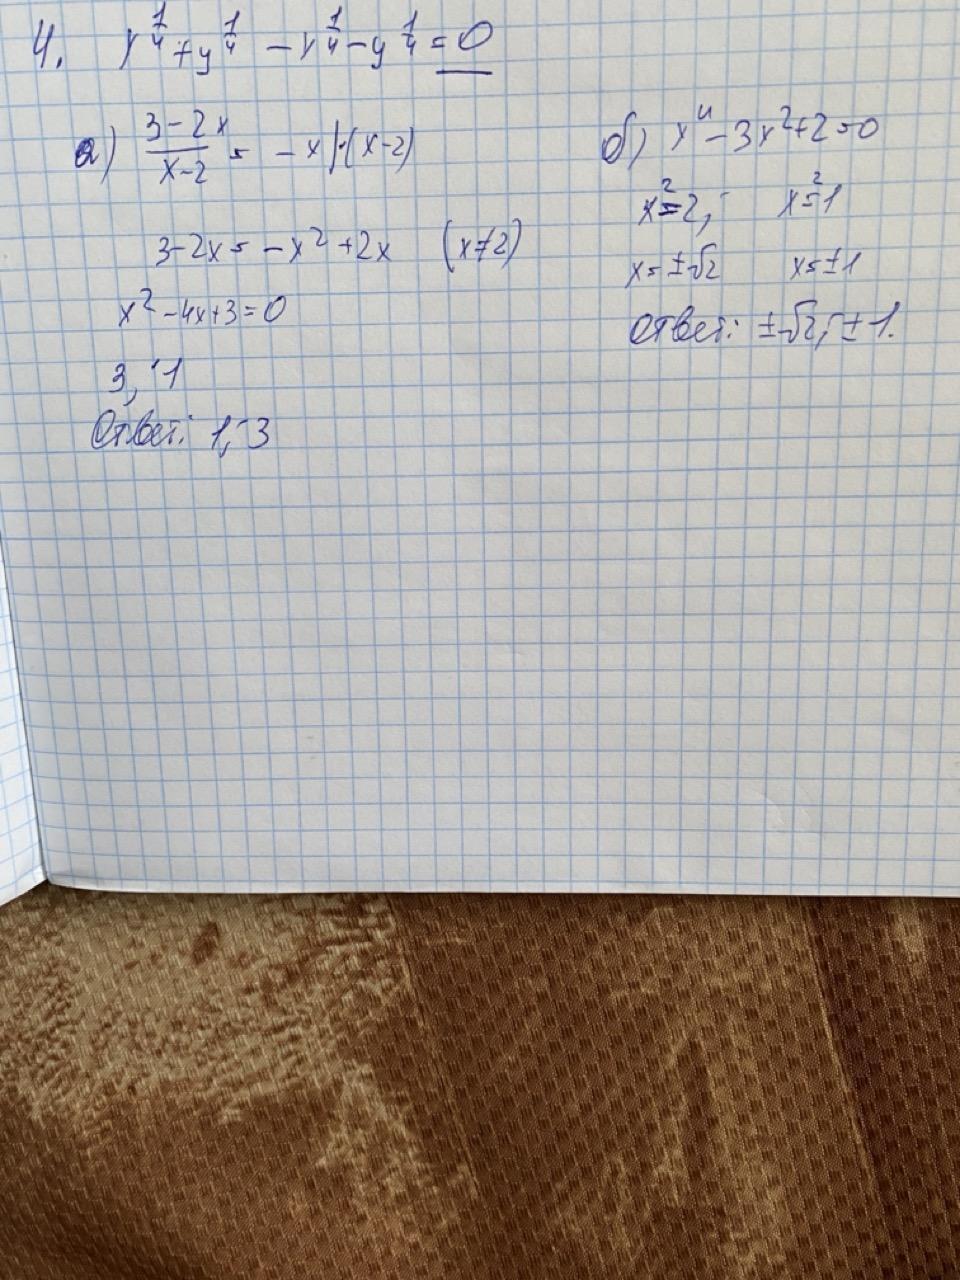 4. x^{1/4} + y^{1/4} - x^{1/4} - y^{1/4} = 0
а) \frac{3-2x}{x-2} = -x |·(x-2)
3-2x = -x² + 2x (x≠2)
x² - 4x + 3 = 0
3; 1
Ответ: 1; 3
б) x⁴ - 3x² + 2 = 0
x² = 2; x² = 1
x = ±√2 x = ±1
Ответ: ±√2; ±1.